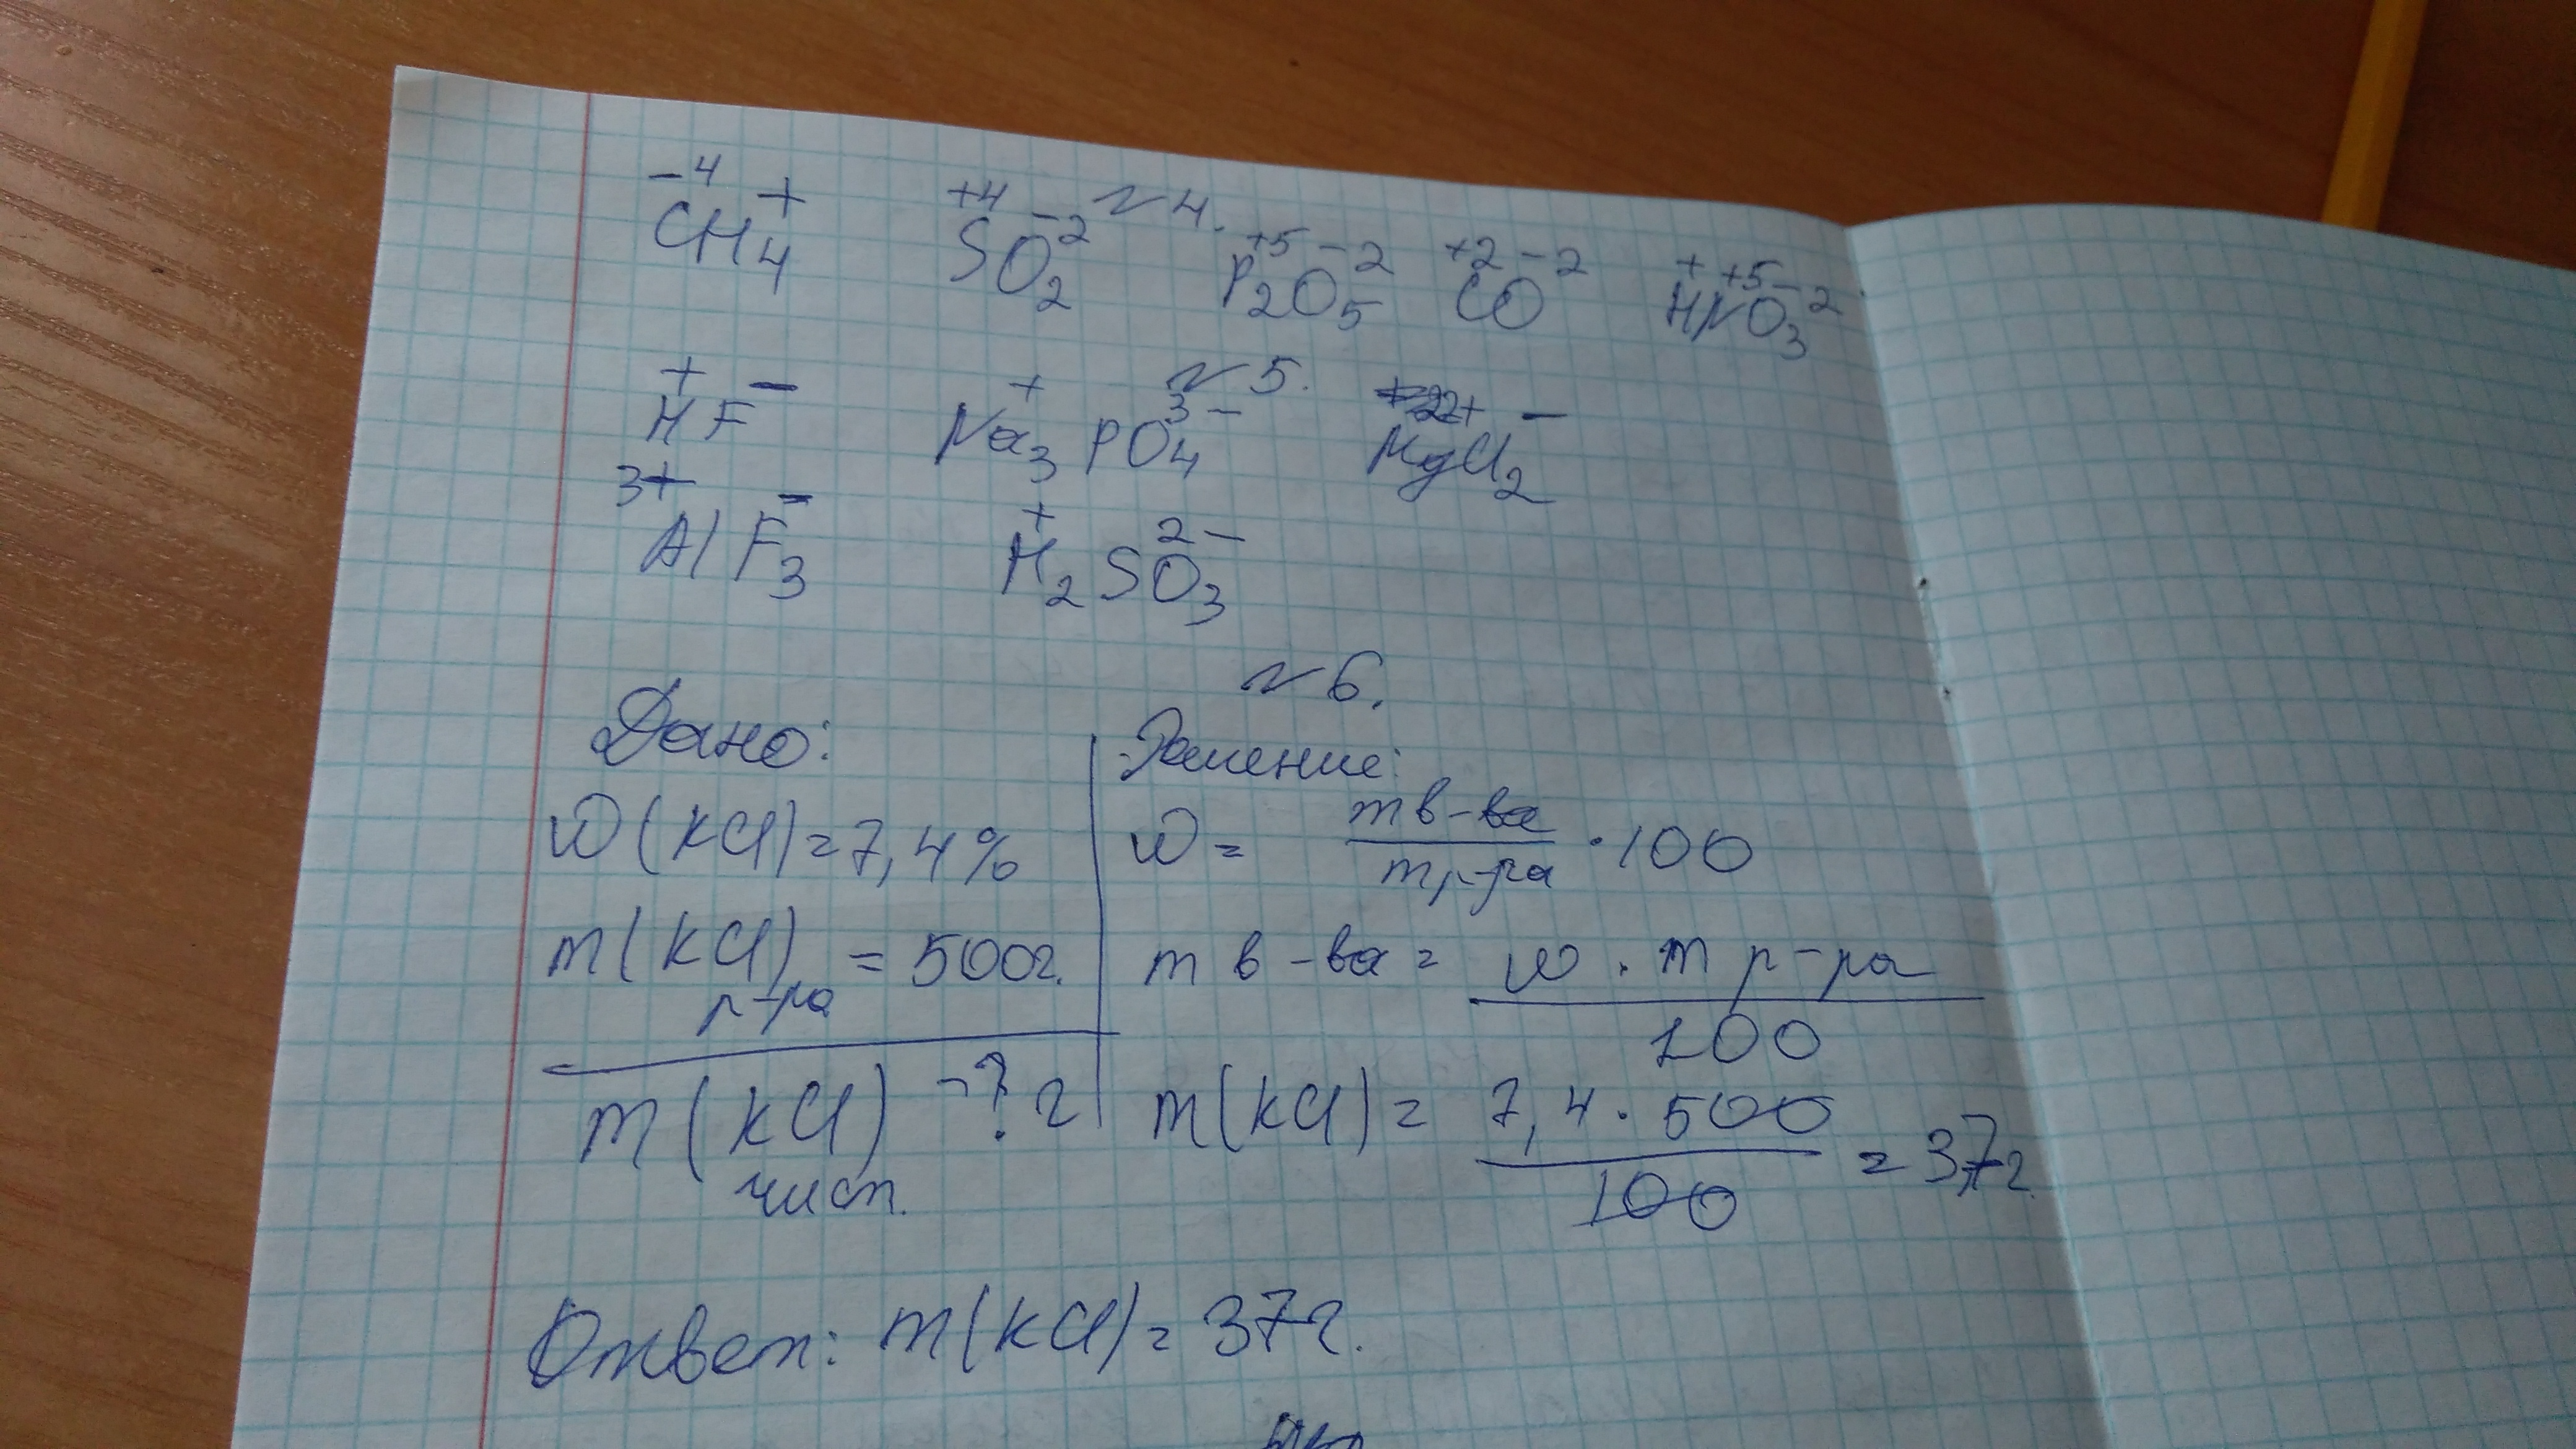 №4.
C⁻⁴H₄⁺ S⁺⁴O₂⁻² P₂⁺⁵O₅⁻² C⁺²O⁻² H⁺N⁺⁵O₃⁻²
№5.
H⁺F⁻ Na₃⁺PO₄³⁻ Mg²⁺Cl₂⁻
Al³⁺F₃⁻ H₂⁺SO₃²⁻
№6.
Дано:
ω(KCl)=7,4%
m(KCl) р-ра = 500г.
m(KCl) чист. -? г
Решение:
ω = m в-ва / m р-ра · 100
m в-ва = ω · m р-ра / 100
m(KCl) = 7,4 · 500 / 100 = 37г.
Ответ: m(KCl) = 37г.